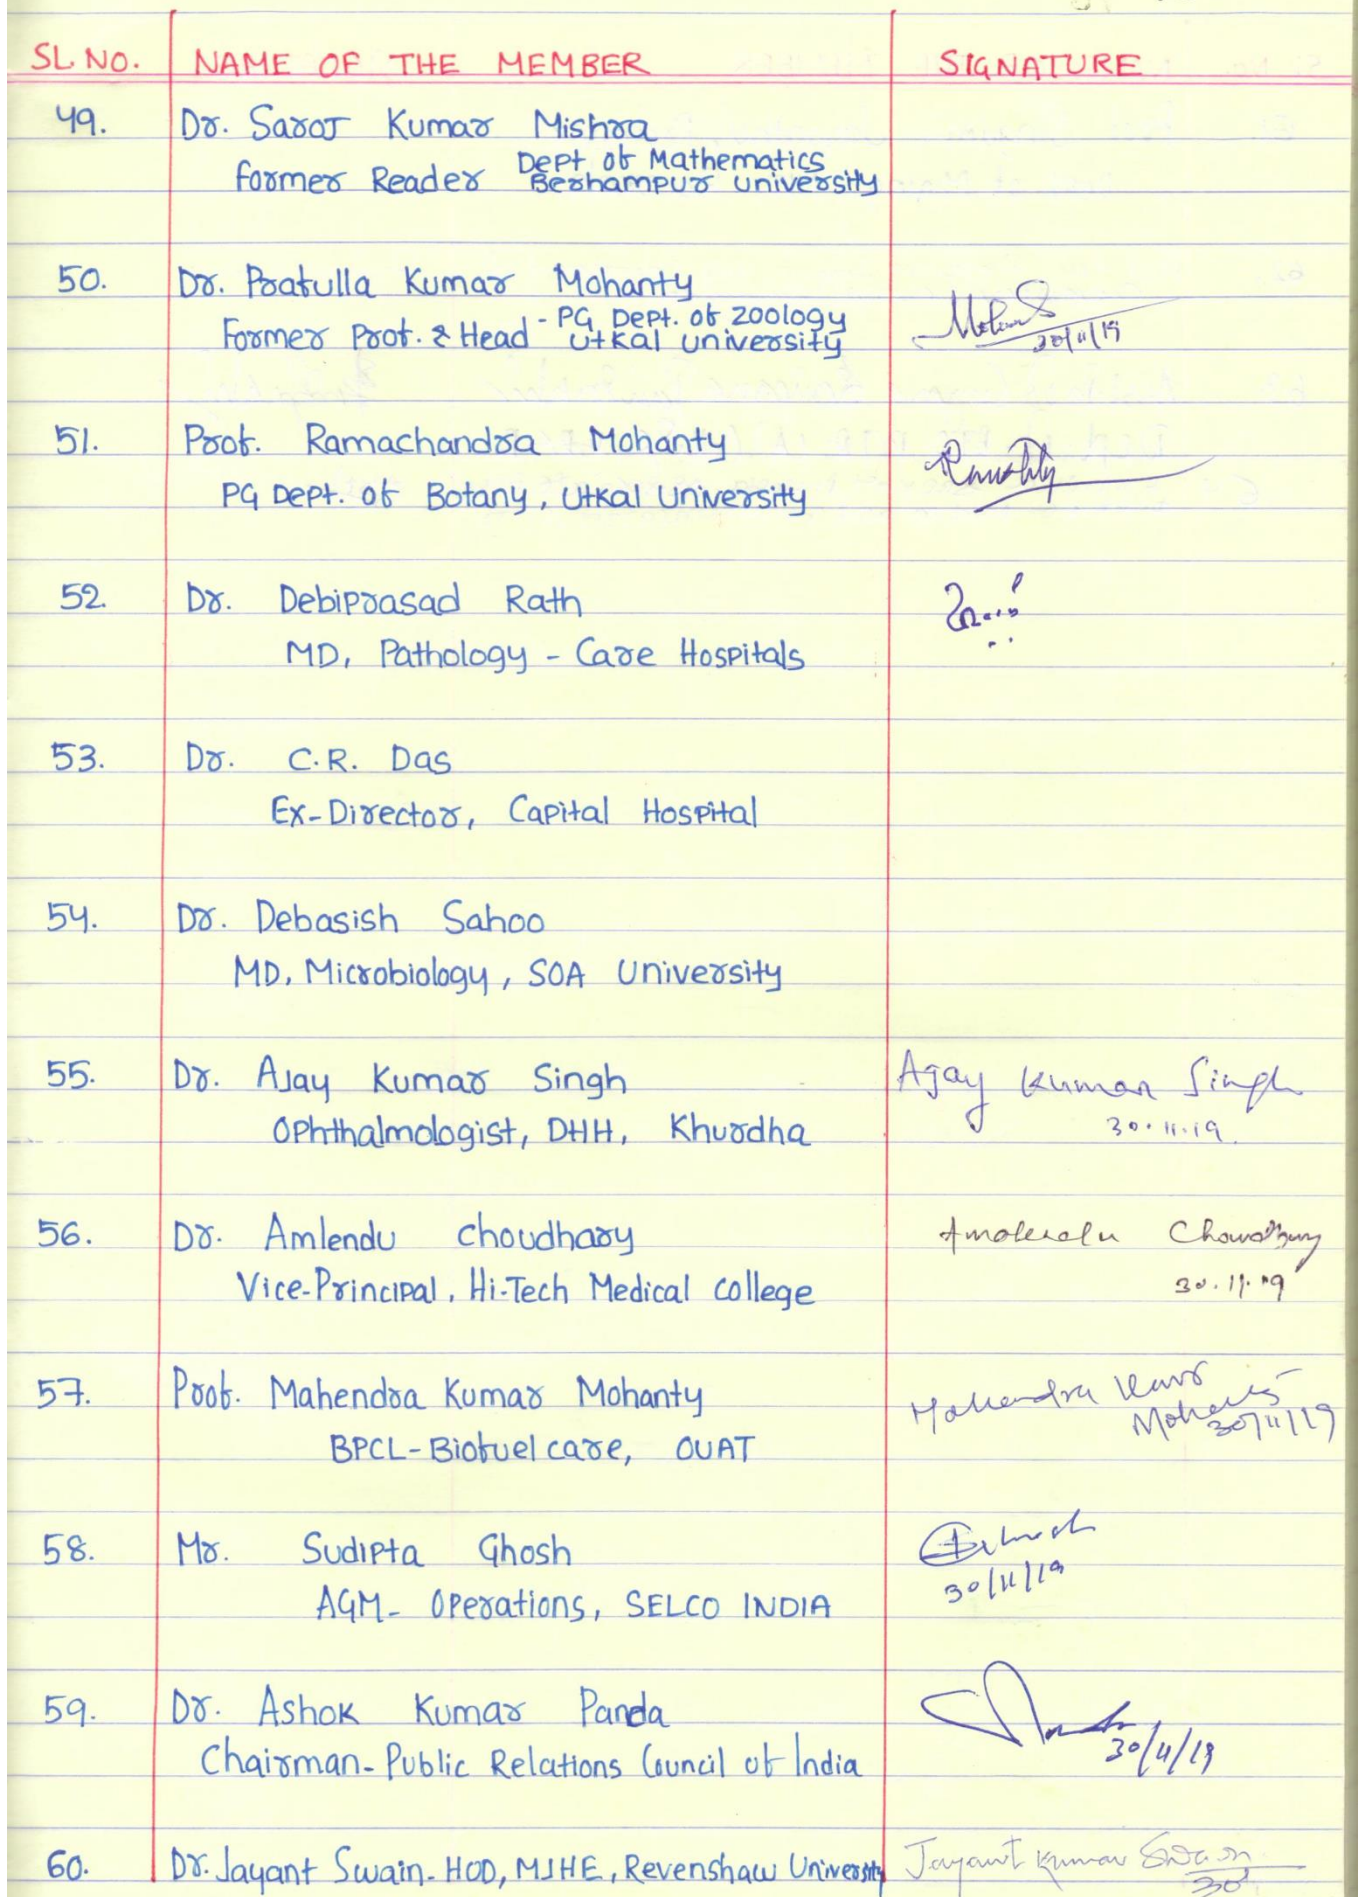 SL NO. NAME OF THE MEMBER SIGNATURE
49. Dr. Saroj Kumar Mishra
Former Reader Dept of Mathematics
Berhampur University
50. Dr. Prafulla Kumar Mohanty
Former Prof. & Head - PG Dept. of Zoology
Utkal University
30/11/19
51. Prof. Ramachandra Mohanty
PG Dept. of Botany, Utkal University
52. Dr. Debiprasad Rath
MD, Pathology - Care Hospitals
53. Dr. C.R. Das
Ex-Director, Capital Hospital
54. Dr. Debasish Sahoo
MD, Microbiology, SOA University
55. Dr. Ajay Kumar Singh Ajay Kumar Singh
Ophthalmologist, DHH, Khurdha 30.11.19
56. Dr. Amlendu Choudhary Chowdhury
Vice-Principal, Hi-Tech Medical College 30.11.19
57. Prof. Mahendra Kumar Mohanty Mahendra Kumar
Mohanty
BPCL-Biofuel care, OUAT 30/11/19
58. Mr. Sudipta Ghosh
AGM- Operations, SELCO INDIA 30/11/19
59. Dr. Ashok Kumar Panda
Chairman- Public Relations Council of India 30/11/19
60. Dr. Jayant Swain- HOD, MJHE, Revenshaw University Jayant Kumar Swain
30